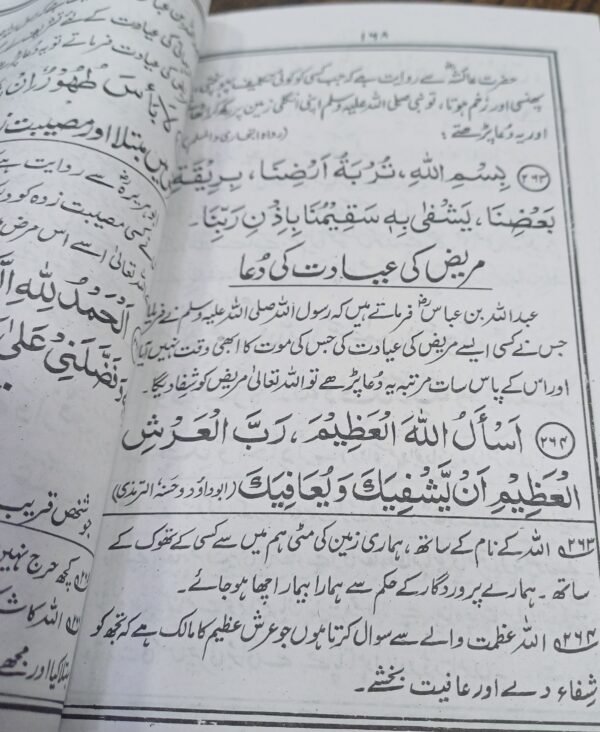 ۱۶۸
حضرت عائشہؓ سے روایت ہے کہ جب کسی کو کوئی تکلیف
پھنسی اور زخم ہوتا، تو نبی صلی اللہ علیہ وسلم اپنی انگلی زمین پر رکھ کر
اور یہ دُعا پڑھتے : (رواہ البخاری والمسلم)
۲۶۳ بِسْمِ اللهِ، تُرْبَةُ اَرْضِنَا، بِرِيْقَةِ
بَعْضِنَا، يَشْفٰى بِهٖ سَقِيْمُنَا بِاِذْنِ رَبِّنَا۔
مریض کی عیادت کی دُعا
عبداللہ بن عباسؓ فرماتے ہیں کہ رسول اللہ صلی اللہ علیہ وسلم نے فرمایا
جس نے کسی ایسے مریض کی عیادت کی جس کی موت کا ابھی وقت نہیں آیا
اور اس کے پاس سات مرتبہ یہ دُعا پڑھے تو اللہ تعالیٰ مریض کو شِفا دیگا۔
۲۶۴ اَسْأَلُ اللهَ الْعَظِيْمَ، رَبَّ الْعَرْشِ
الْعَظِيْمِ اَنْ يَّشْفِيَكَ وَيُعَافِيَكَ (ابوداؤد وحسنہ الترمذی)
۲۶۳ اللہ کے نام کے ساتھ، ہماری زمین کی مٹی ہم میں سے کسی کے تھوک کے
ساتھ۔ ہمارے پروردگار کے حکم سے ہمارا بیمار اچھا ہو جائے۔
۲۶۴ اللہ عظمت والے سے سوال کرتا ہوں جو عرش عظیم کا مالک ہے کہ تجھ کو
شِفاء دے اور عافیت بخشے۔
کی عیادت فرماتے تو یہ دُعا
لَا بَأْسَ طَهُوْرٌ اِنْ
میں مبتلا اور مصیبت ز
سے روایت ہے
کسی مصیبت زدہ کو د
اللہ تعالیٰ اسے اس مرض
اَلْحَمْدُ لِلّٰهِ الَّ
وَفَضَّلَنِيْ عَلٰى
جو شخص قریب
کچھ حرج نہیں
اللہ کا شک
مبتلا کیا اور مجھے